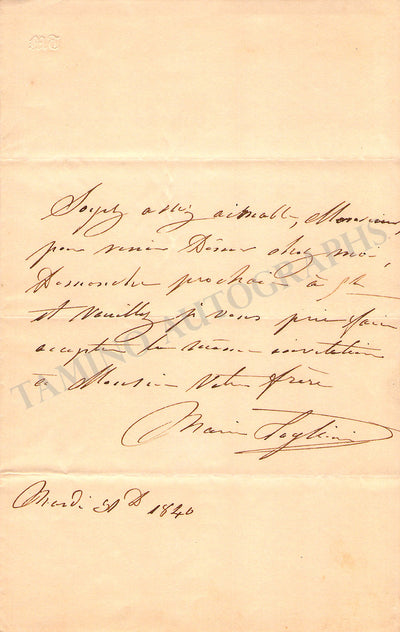 MT
Soyez assez aimable, Monsieur,
pour venir Dîner chez moi,
Dimanche prochain à 5h
et veuillez je vous prie faire
accepter la même invitation
à Monsieur Votre frère
Marie Taglioni
Mardi 1840
TAMINO AUTOGRAPHS